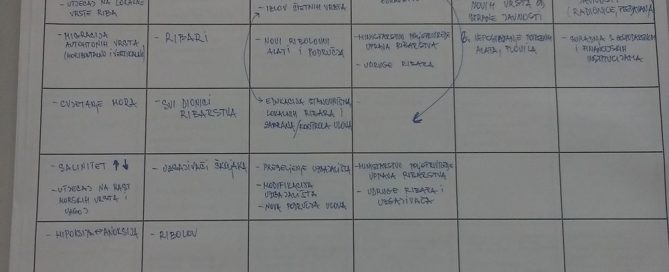 - UTJECAJ NA LOKALNE
VRSTE RIBA
- IZLOV ŠTETNIH VRSTA
NOVIH VRSTA OD
STRANE JAVNOSTI
JAVNOSTI
(RADIONICE, PREDAVANJA)
- MIGRACIJA
AUTOHTONIH VRSTA
(HORIZONTALNO I VERTIKALNO)
- RIBARI
- NOVI RIBOLOVNI
ALATI I PODRUČJA
- MINISTARSTVO POLJOPRIVREDE
UPRAVA RIBARSTVA
- UDRUGE RIBARA
NEPOSJEDOVANJE POTREBNIH
ALATA, PLOVILA
- SURADNJA S GOSPODARSKIM
I FINANCIJSKIM
INSTITUCIJAMA
- CVJETANJE MORA
- SVI DIONICI
RIBARSTVA
- EDUKACIJA STANOVNIŠTVA,
LOKALNIH RIBARA I
/KONTROLA ULOVA
-
- SALINITET ↑↓
- UTJECAJ NA RAST
MORSKIH VRSTA I
UZGOJ
- UZGAJIVAČI ŠKOLJAKA
- PRESELJENJE UZGAJALIŠTA
- MODIFIKACIJA
UZGAJALIŠTA
- NOVA PODRUČJA ULOVA
- MINISTARSTVO POLJOPRIVREDE
UPRAVA RIBARSTVA
- UDRUGE RIBARA I
UZGAJIVAČA
- HIPOKSIJA ↔ ANOKSIJA
- RIBOLOV